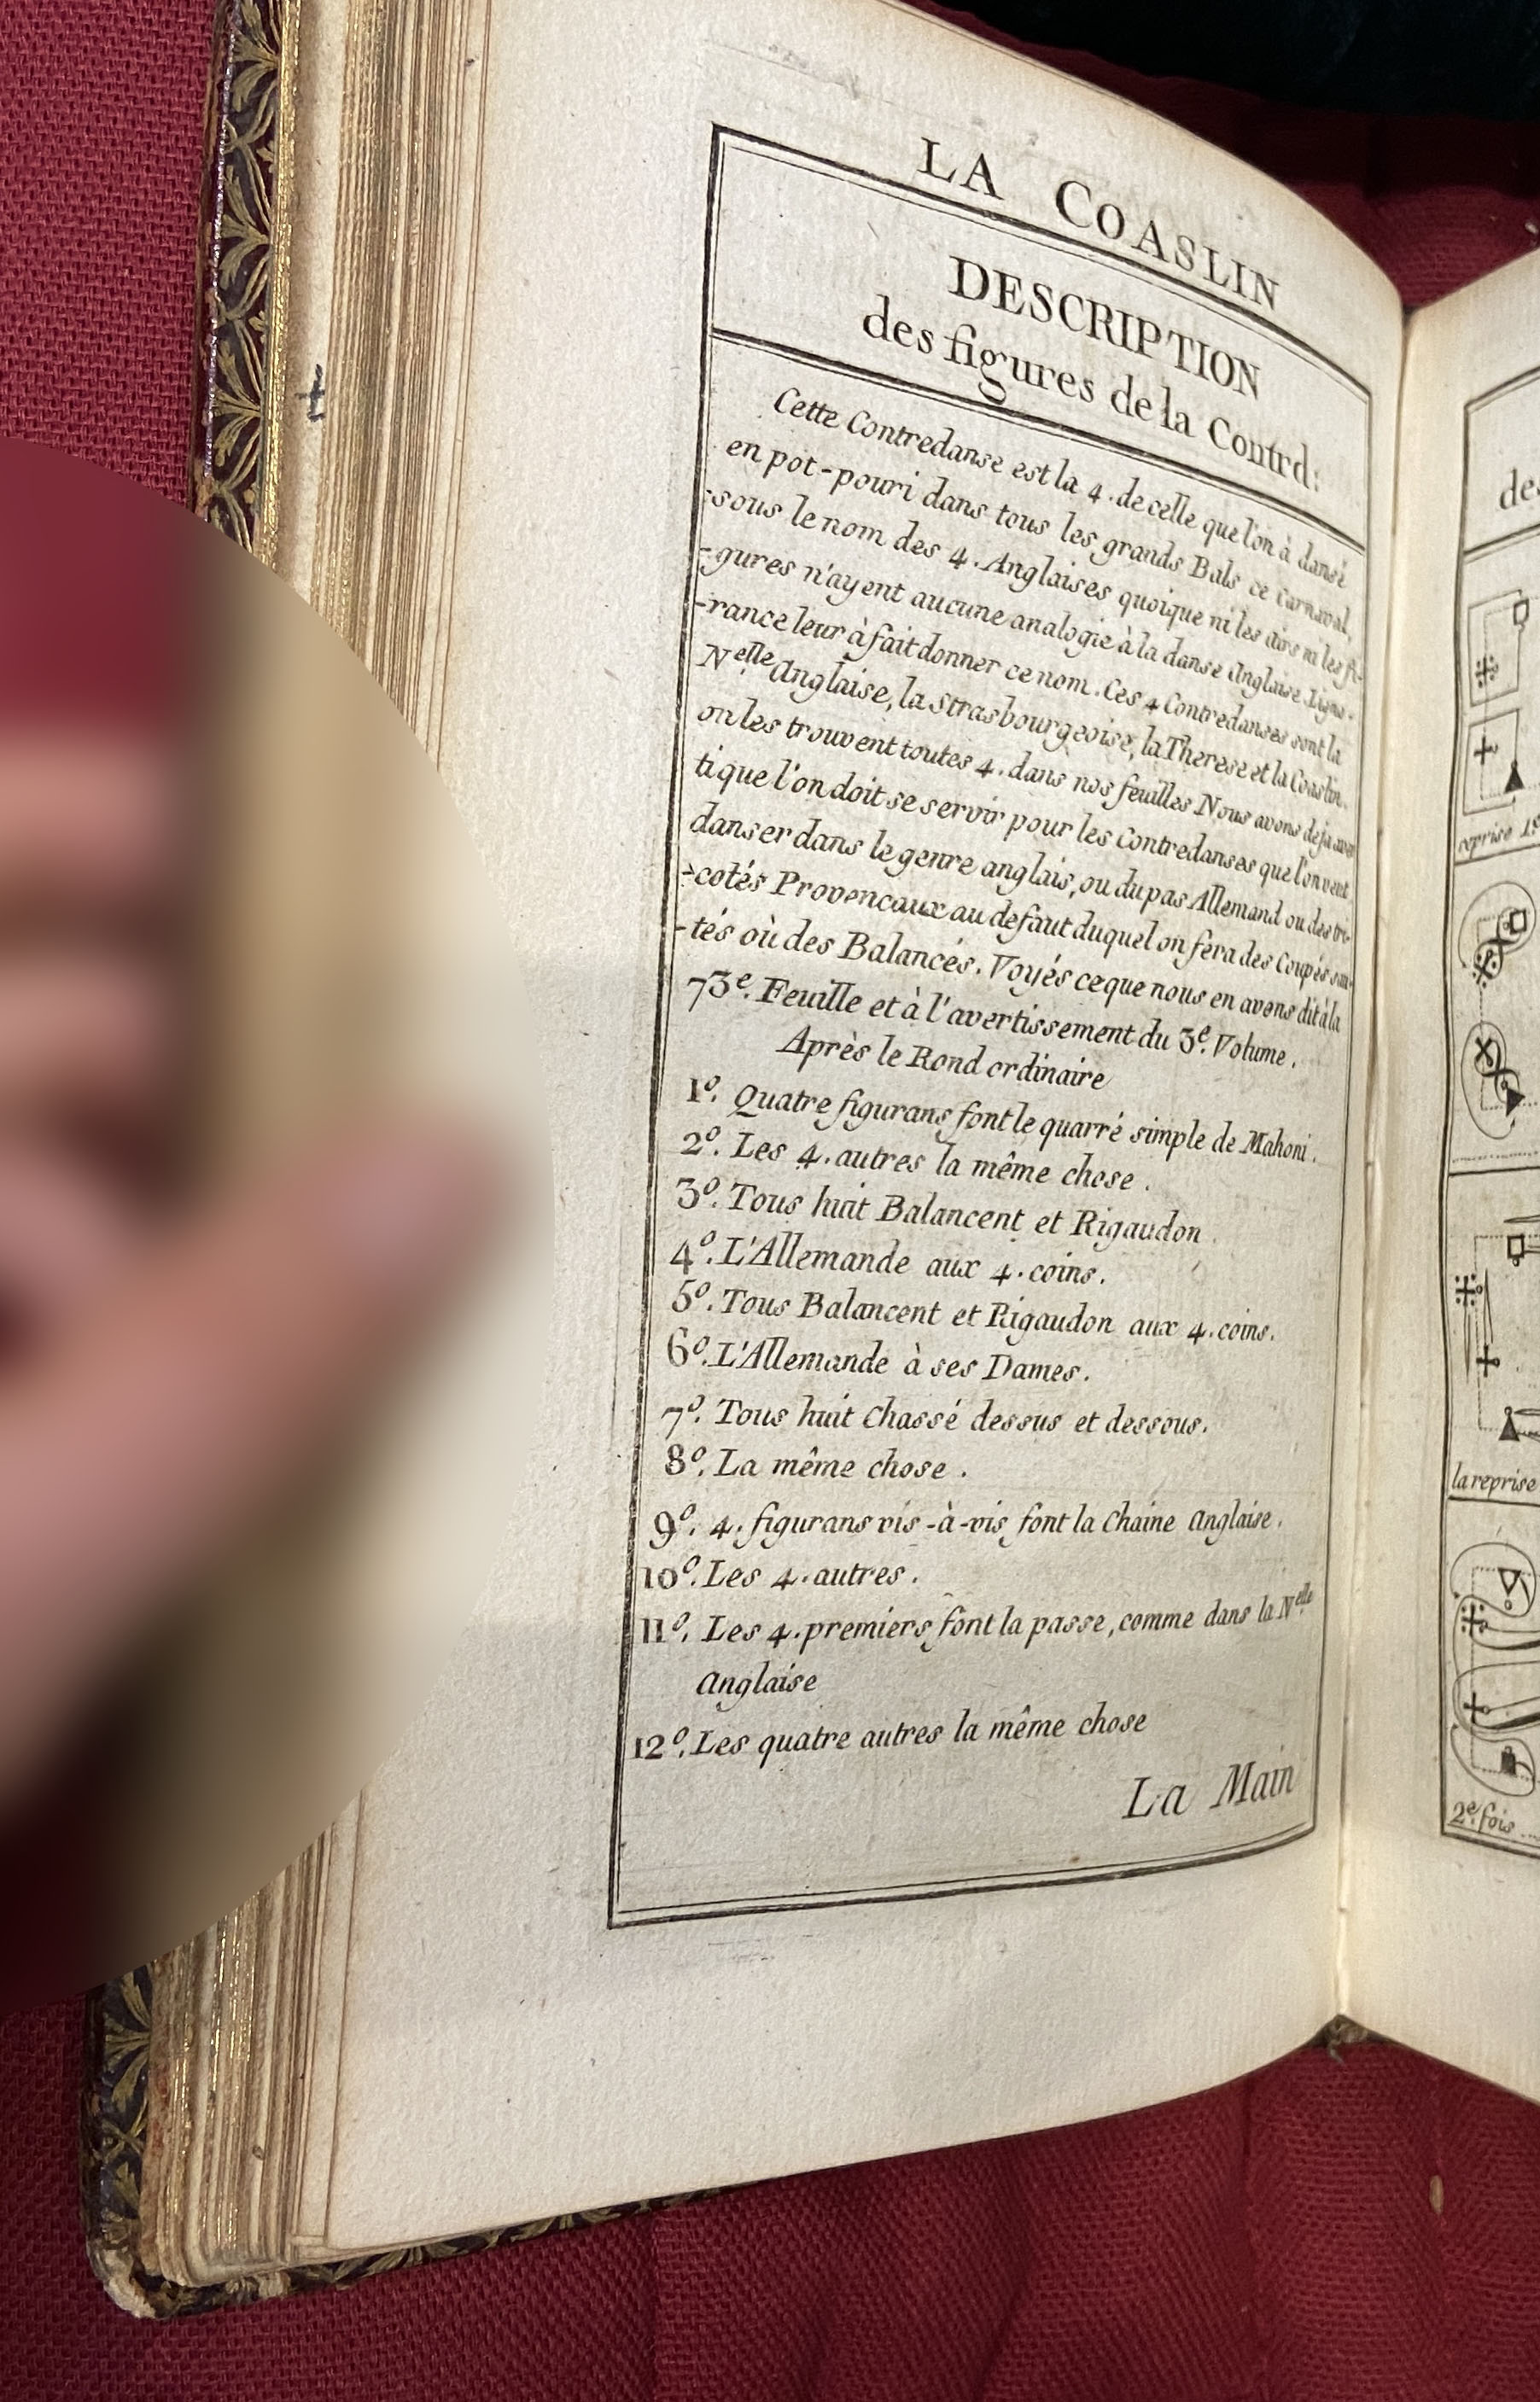 LA COASLIN
DESCRIPTION
des figures de la Contrd:
Cette Contredanse est la 4. de celle que l'on à dansé
en pot-pouri dans tous les grands Bals ce Carnaval,
sous le nom des 4. Anglaises quoique ni les airs ni les fi-
-gures n'ayent aucune analogie à la danse Anglaise l'igno-
-rance leur à fait donner ce nom. Ces 4 Contredanses sont la
N.elle Anglaise, la Strasbourgeoise, la Therese et la Coaslin.
on les trouvent toutes 4. dans nos feuilles Nous avons deja aver
ti que l'on doit se servir pour les Contredanses que l'on veut
danser dans le genre anglais, ou du pas Allemand ou des tri-
-cotés Provencaux au defaut duquel on fera des Coupés sau-
-tés où des Balancés. Voyés ce que nous en avons dit à la
73e. Feuille et à l'avertissement du 3e. Volume.
Après le Rond ordinaire
1o. Quatre figurans font le quarré simple de Mahoni.
2o. Les 4. autres la même chose.
3o. Tous huit Balancent et Rigaudon
4o. L'Allemande aux 4. coins.
5o. Tous Balancent et Rigaudon aux 4. coins.
6o. L'Allemande à ses Dames.
7o. Tous huit Chassé dessus et dessous.
8o. La même chose.
9o. 4. figurans vis-à-vis font la Chaine Anglaise.
10o. Les 4. autres.
11o. Les 4. premiers font la passe, comme dans la N.elle
Anglaise
12o. Les quatre autres la même chose
La Main
des
reprise 1e
la reprise
2e. fois